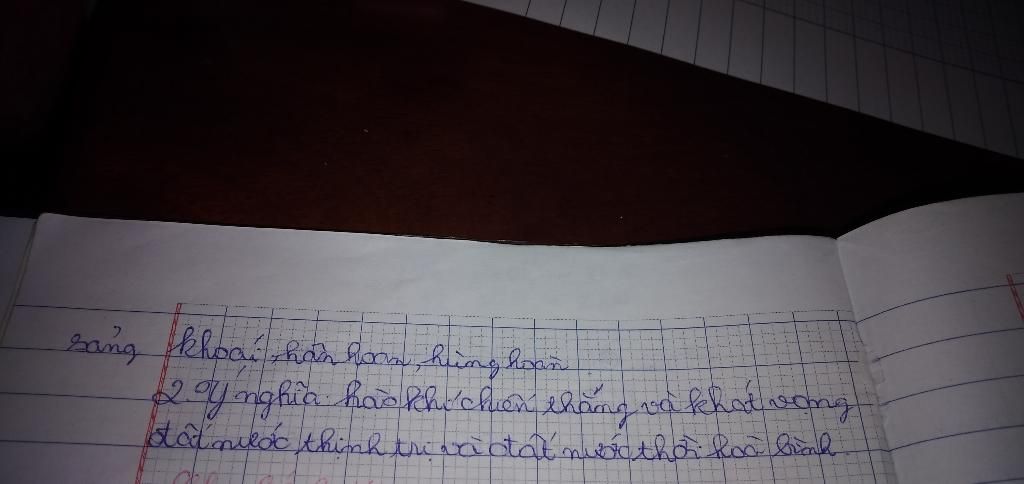 sảng khoái, hân hoan, hùng hoàn
2. Ý nghĩa: hào khí chiến thắng và khát vọng
đất nước thịnh trị và đất nước thời hoà bình.